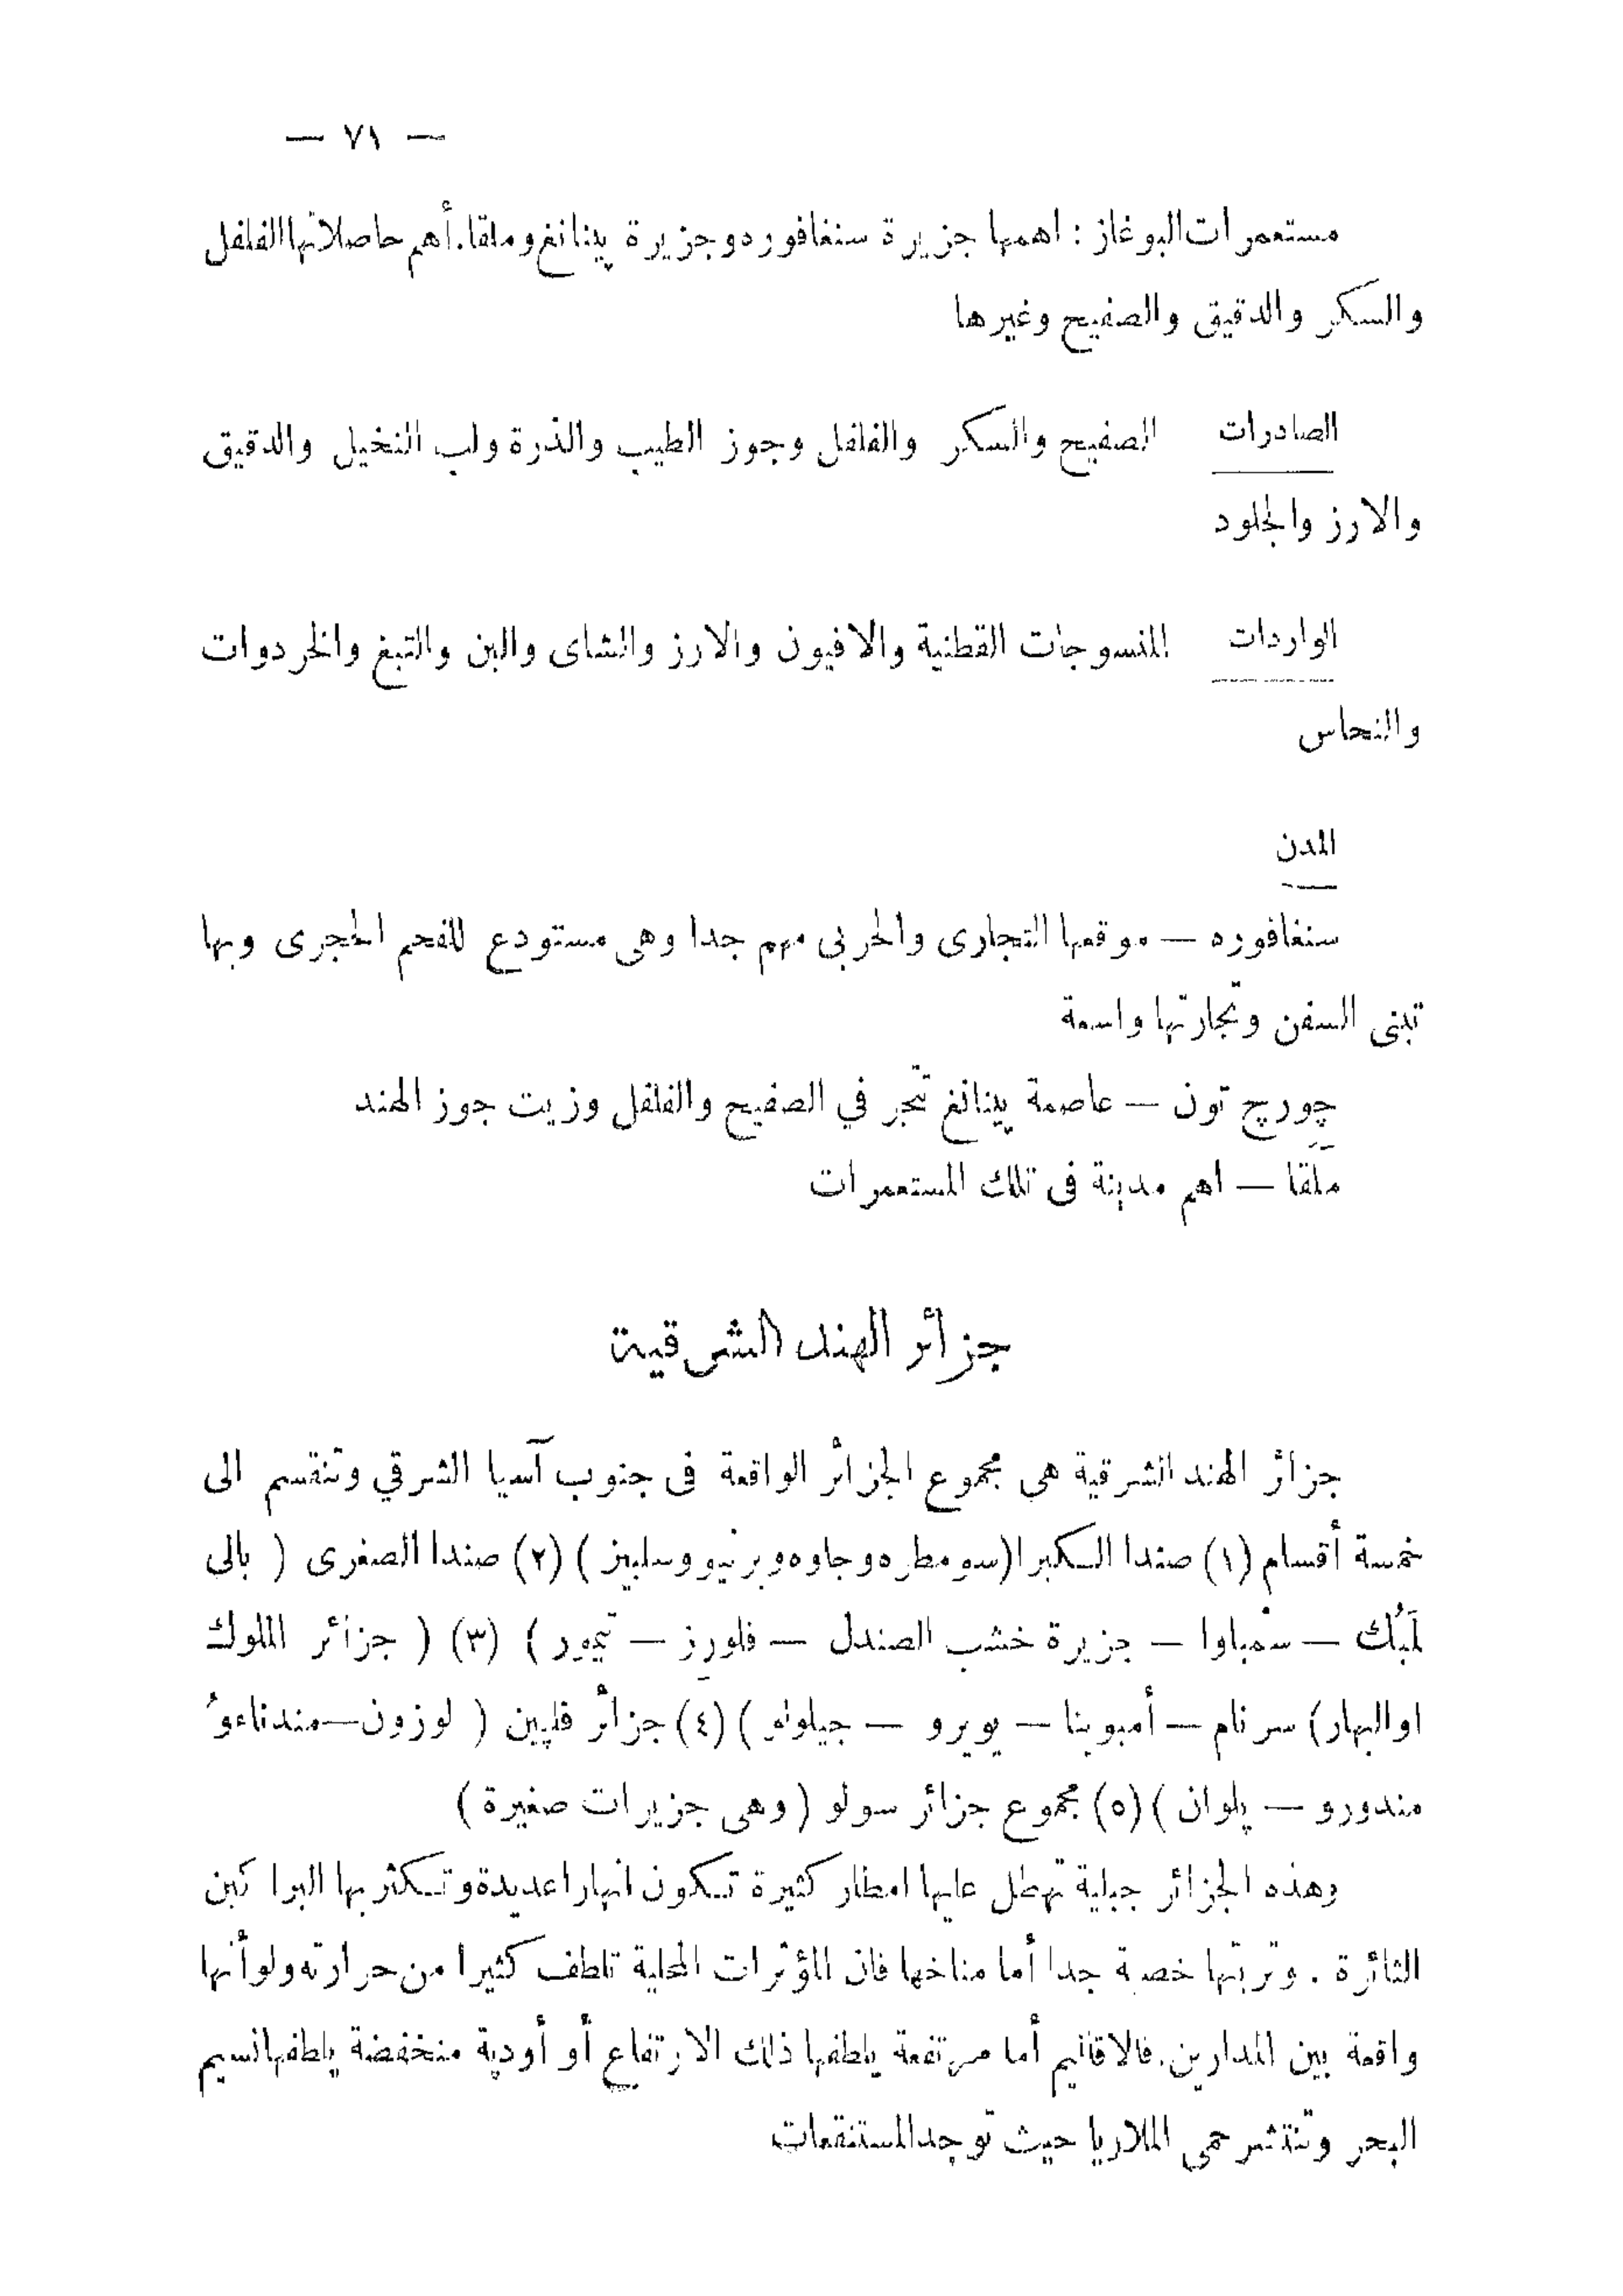 — ٧١ —
مستعمرات البوغاز : اهمها جزيرة سنغافوره وجزيرة پينانغ وملقا. أهم حاصلاتها الفلفل
والسكر والدقيق والصفيح وغيرها
الصادرات الصفيح والسكر والفلفل وجوز الطيب والذرة ولب النخيل والدقيق
والارز والجلود
الواردات المنسوجات القطنية والافيون والارز والشاى والبن والتبغ والخردوات
والنحاس
المدن
سنغافوره — موقعها التجارى والحربى مهم جدا وهى مستودع للفحم الحجرى وبها
تبنى السفن وتجارتها واسعة
چورچ تون — عاصمة پينانغ تتجر في الصفيح والفلفل وزيت جوز الهند
ملقا — اهم مدينة فى تلك المستعمرات
جزائر الهند الشرقية
جزائر الهند الشرقية هى مجموع الجزائر الواقعة فى جنوب آسيا الشرقي وتنقسم الى
خمسة أقسام (١) صندا الكبرا (سومطره وجاوه وبرنيو وسلبيز ) (٢) صندا الصغرى ( بالى
لمبُك — سمباوا — جزيرة خشب الصندل — فلورز — تيمور ) (٣) ( جزائر الملوك
او البهار) سرنام — أمبوينا — بويرو — جيلولو ) (٤) جزائر فلپين ( لوزون — مندناءو
مندورو — پلوان ) (٥) مجموع جزائر سولو ( وهى جزيرات صغيرة )
وهذه الجزائر جبلية تهطل عليها امطار كثيرة تكون انهارا عديدة وتكثر بها البراكين
الثائرة . وتربتها خصبة جدا أما مناخها فان المؤثرات المحلية تلطف كثيرا من حرارته ولو أنها
واقعة بين المدارين. فالاقاليم أما مرتفعة يلطفها ذلك الارتفاع أو أودية منخفضة يلطفها نسيم
البحر وتنتشر حمى الملاريا حيث توجد المستنقعات